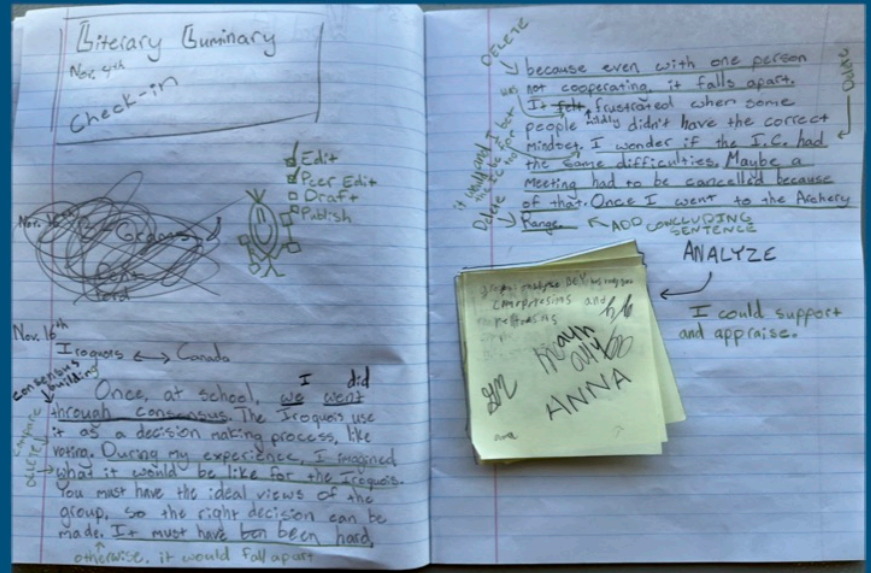 Literary Luminary
Nov. 4th
Check-in
Edit
Peer Edit
Draft
Publish
Nov. 16th
Iroquois ↔ Canada
consensus building
I did
Once, at school, we went
through consensus. The Iroquois use
it as a decision making process, like
voting. During my experience, I imagined
what it would be like for the Iroquois.
You must have the ideal views of the
group, so the right decision can be
made. It must have ben been hard,
otherwise, it would fall apart
compare
DELETE
DELETE
because even with one person
not cooperating, it falls apart.
was
It felt frustrated when some
people didn't have the correct
mindset. I wonder if the I.C. had
the same difficulties. Maybe a
meeting had to be cancelled because
of that. Once I went to the Archery
Range.
ADD CONCLUDING
SENTENCE
Delete
Delete
ANALYZE
I could support
and appraise.
comprehesins and
ANNA